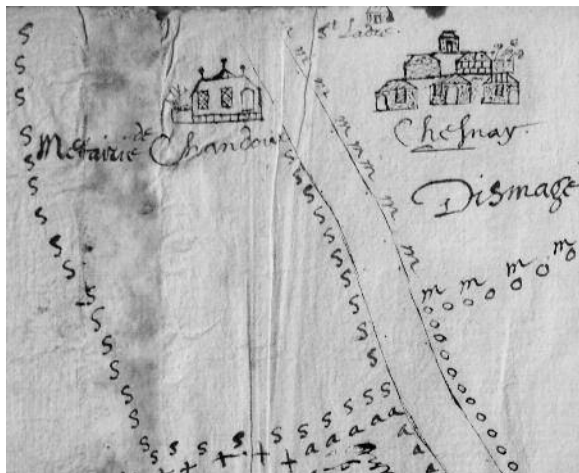 St Ladre
Metairie de Chandoux
Chesnay
Dismage